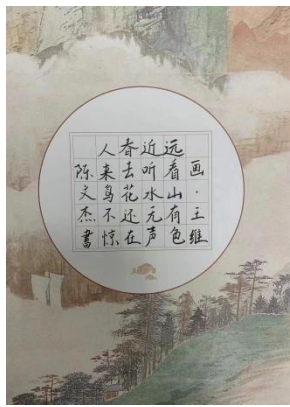 画·王维
远看山有色
近听水无声
春去花还在
人来鸟不惊
陈文杰書